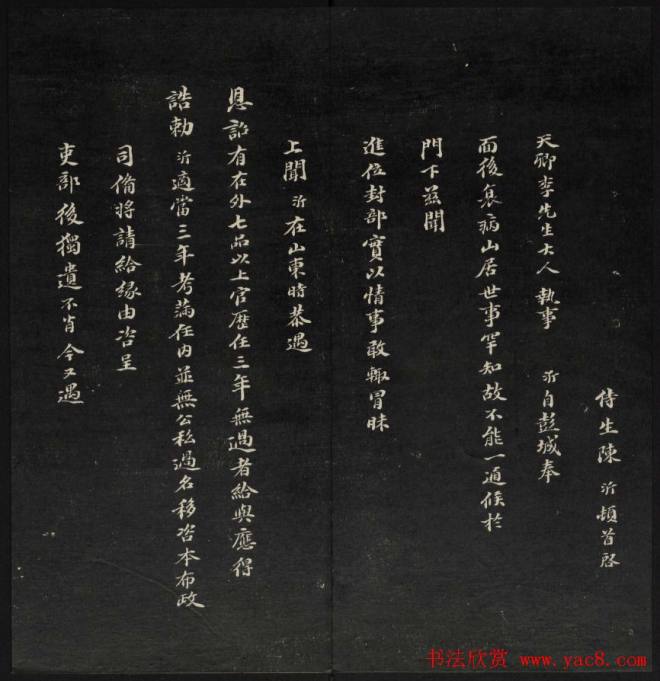 侍生陳沂頓首啓
天卿李先生大人執事 沂自彭城奉
而後衰病山居世事罕知故不能一通候於
門下茲聞
進位封部實以情事敢輙冒昧
上聞沂在山東時恭遇
恩詔有在外七品以上官歷任三年無過者給與應得
誥勅沂適當三年考滿任内並無公私過名移咨本布政
司備將請給緣由咨呈
吏部後獨遺不肖今又遇
书法欣赏 www.yac8.com